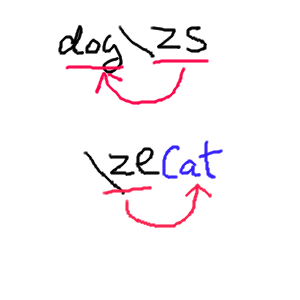 dog\zs
\zeCat